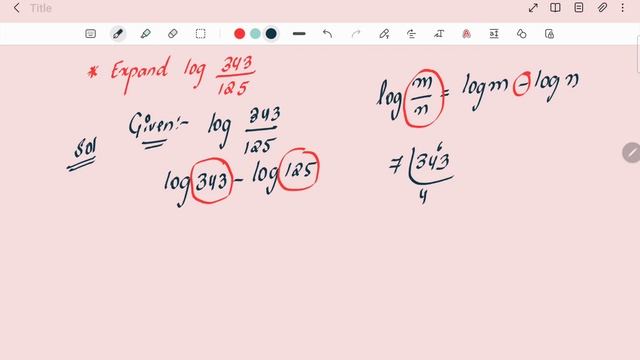 Title
* Expand log 343/125
log m/n = log m - log n
Sol Given:- log 343/125
log 343 - log 125
7 | 343 6
4